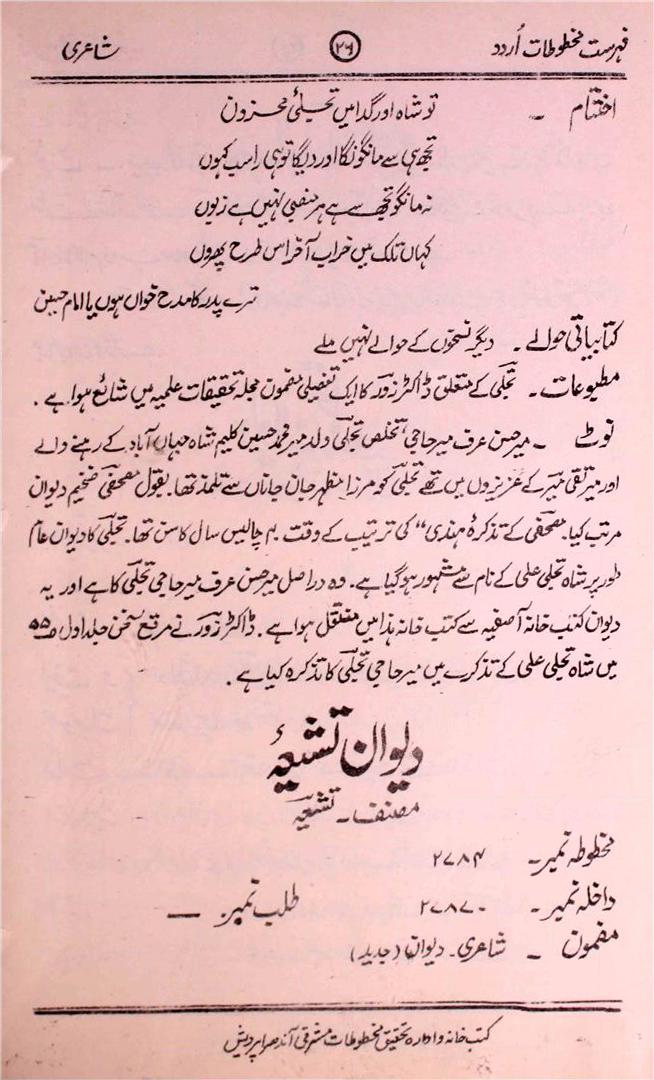 فہرست مخطوطات اُردو ۲۶ شاعری
اختتام ۔ تو شاہ اور گدا میں تجلئی محزون
تجھ ہی سے مانگونگا اور دیگا تو ہی راسب کہوں
نہ مانگو تجھ سے ہے ہر منصبی نہیں ہے زبوں
کہاں تلک میں خراب آخر اس طرح پھروں
ترے پدر کا مدح خواں ہوں یا امام حسین
کتابیاتی حوالے ۔ دیگر نسخوں کے حوالے نہیں ملے
مطبوعات ۔ تجلی کے متعلق ڈاکٹر زور کا ایک تفصیلی مضمون مجلہ تحقیقات علمیہ میں شائع ہوا ہے ۔
نوٹ ۔ میر حسن عرف میر حاجی تخلص تجلی ولد میر محمد حسین کلیم شاہ جہاں آباد کے رہنے والے
اور میر تقی میر کے عزیزوں میں تھے تجلی کو مرزا مظہر جان جاناں سے تلمذ تھا۔ بقول مصحفی ضخیم دیوان
مرتب کیا۔ مصحفی کے تذکرہ ہندی“ کی ترتیب کے وقت ۴۰ چالیس سال کا سن تھا۔ تجلی کا دیوان عام
طور پر شاہ تجلی علی کے نام سے مشہور ہو گیا ہے۔ وہ دراصل میر حسن عرف میر حاجی تجلی کا ہے اور یہ
دیوان کتب خانہ آصفیہ سے کتب خانہ ہذا میں منتقل ہوا ہے۔ ڈاکٹر زور نے مرقع سخن جلد اول ص ۵۵
میں شاہ تجلی علی کے تذکرے میں میر حاجی تجلی کا تذکرہ کیا ہے ۔
دیوان تشعیہ
مصنف ۔ تشعیہ
مخطوطہ نمبر ۔ ۲۷۸۴
داخلہ نمبر ۔ ۲۷۸۷۰ طلب نمبر ۔ —
مضمون ۔ شاعری ۔ دیوان (جدید)
کتب خانہ و ادارہ تحقیق مخطوطات مشرقی آندھرا پردیش